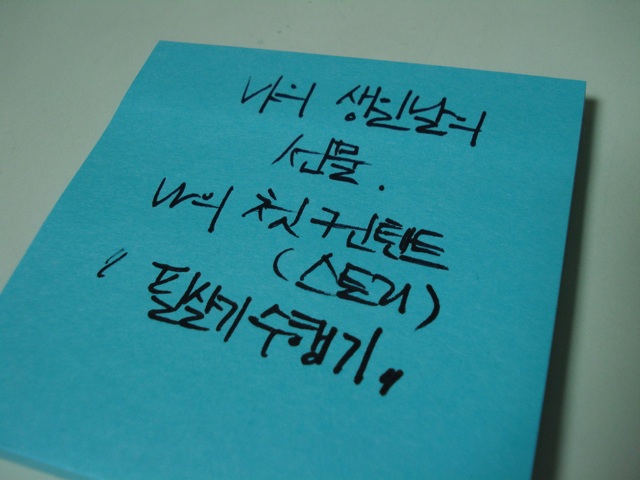 나의 생일날의
선물.
나의 첫 컨텐트
(스토리)
"필살기 수행기"